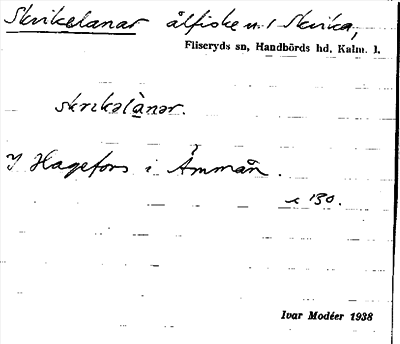 Skvikelanar ålfiske n. / Skvika,
Fliseryds sn, Handbörds hd, Kalm. l.
skvɪkəlànar.
I Hagefors i Åmmån.
s 130.
Ivar Modéer 1938